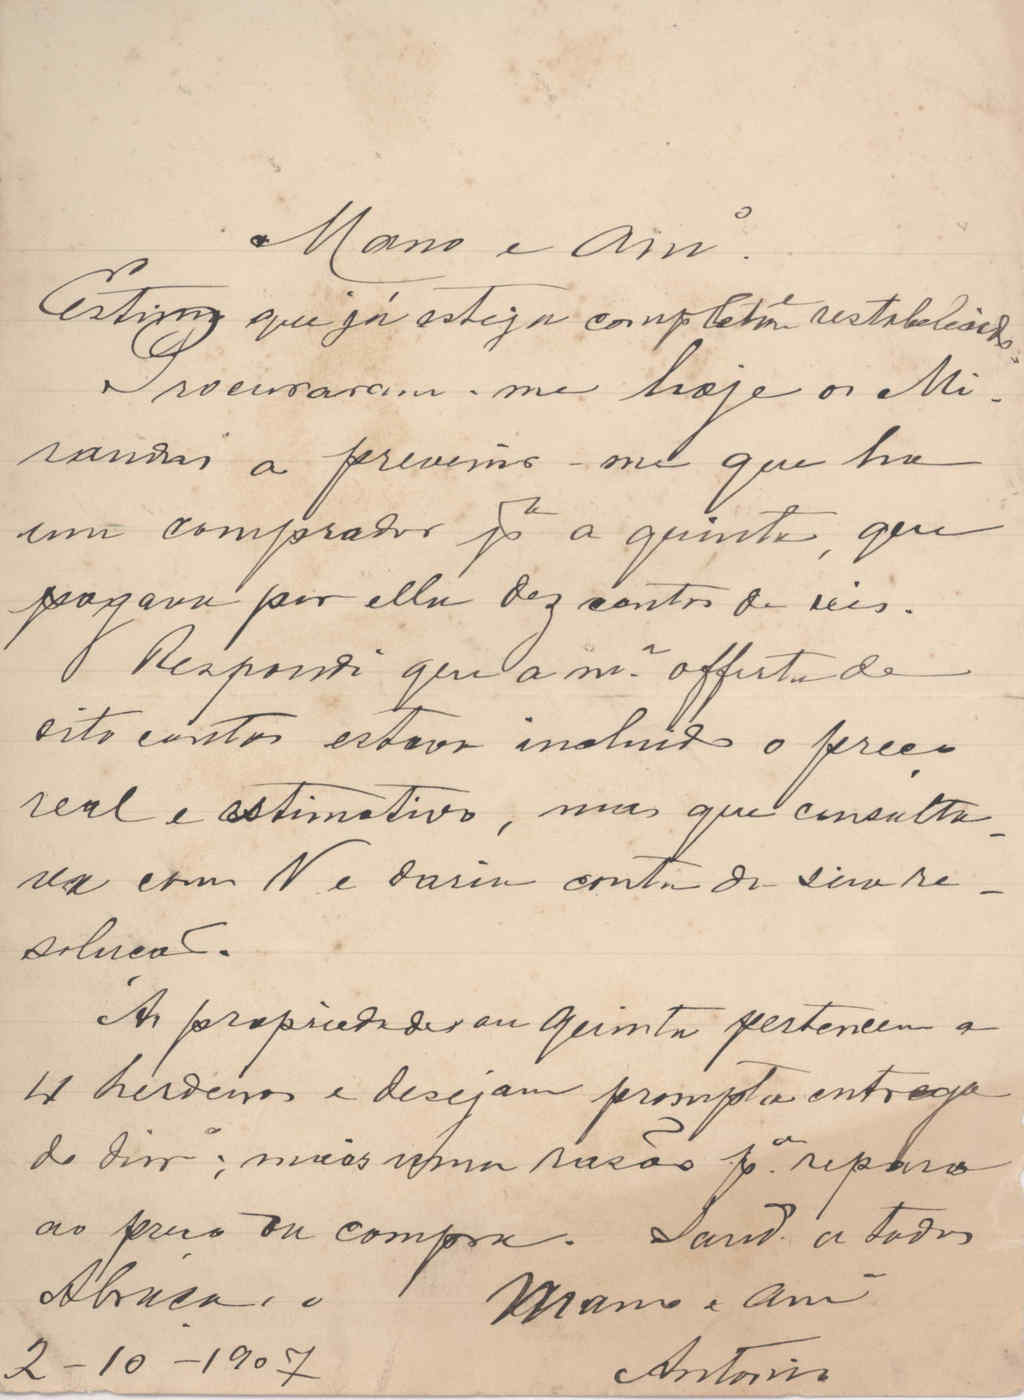 Mano e Amº.
Estimo que já esteja completãe restabelecido.
Procuraram-me hoje os Mi-
randas a prevenir-me que ha
um comprador pª a quinta, que
pagava por ella dez contos de reis.
Respondi que a mª offerta de
oito contos estava incluido o preço
real e estimativo, mas que consulta-
va com V e daria conta da sua re-
solução.
As propriedades ou Quinta pertencem a
4 herdeiros e desejam prompta entrega
do dinrº; mais uma rasão pª. reparo
ao preço da compra. Saud. a todos
Abraça, o Mano e Am
2-10-1907 Antonio